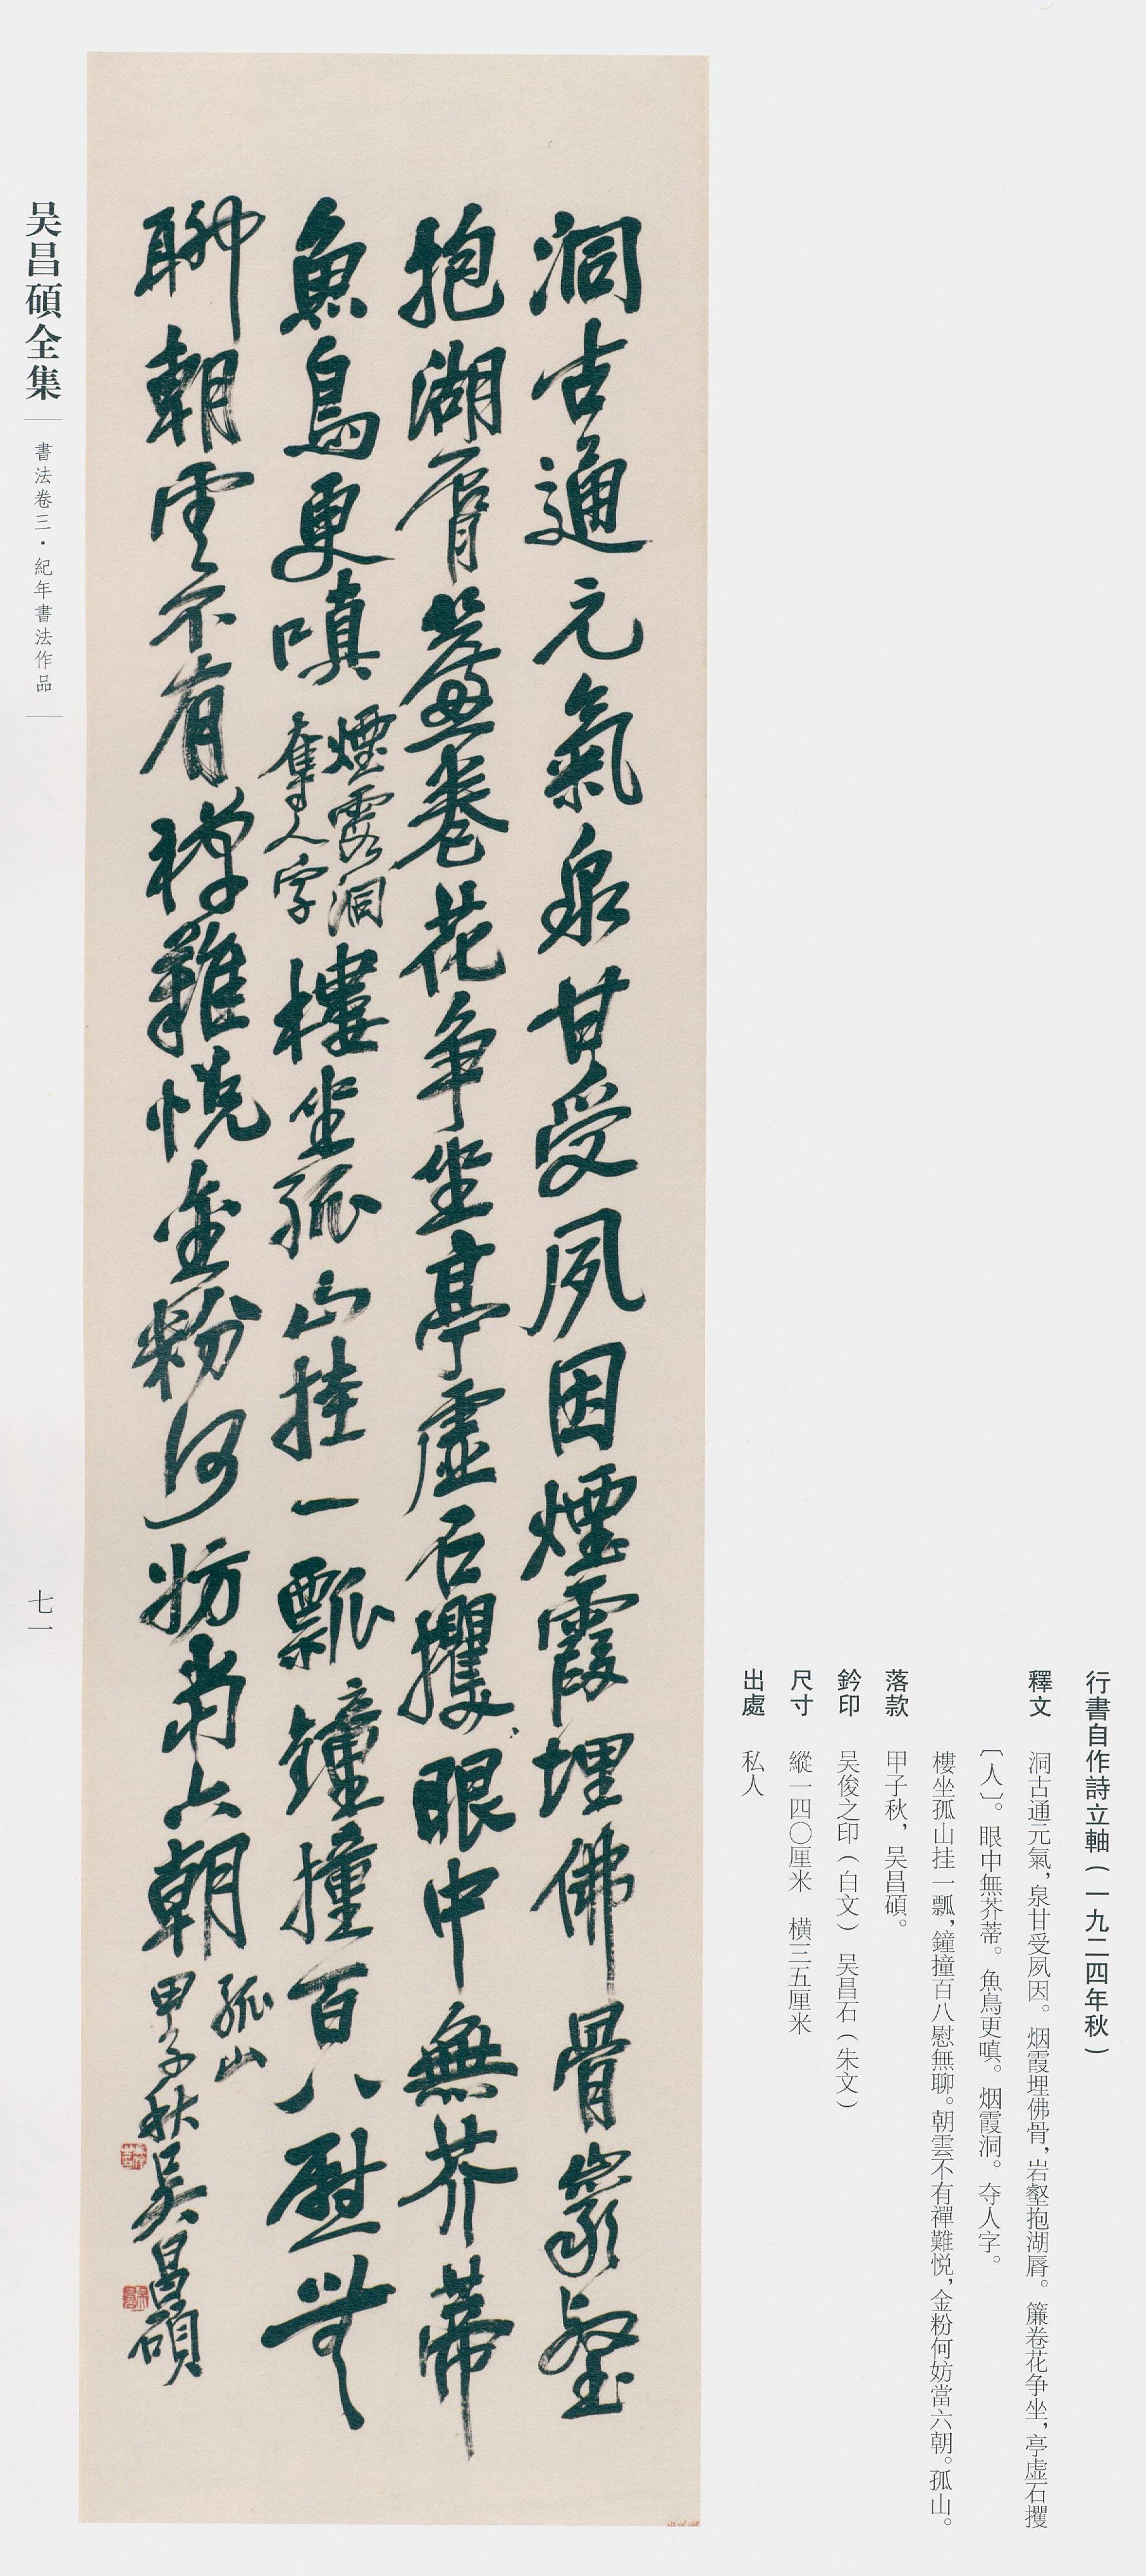 行書自作詩立軸（一九二四年秋）
釋文 洞古通元氣，泉甘受夙因。烟霞埋佛骨，岩壑抱湖脣。簾卷花争坐，亭虛石攫
〔人〕。眼中無芥蒂。魚鳥更嗔。烟霞洞。夺人字。
樓坐孤山挂一瓢，鐘撞百八慰無聊。朝雲不有禪難悦，金粉何妨當六朝。孤山。
落款 甲子秋，吴昌碩。
鈐印 吴俊之印（白文） 吴昌石（朱文）
尺寸 縱一四〇厘米 横三五厘米
出處 私人
洞古通元氣泉甘受夙因煙霞埋佛骨巖壑
抱湖脣簾卷花争坐亭虛石攫眼中無芥蒂
魚鳥更嗔
煙霞洞
奪人字
樓坐孤山挂一瓢鐘撞百八慰無
聊朝雲不有禪難悦金粉何妨當六朝
孤山
甲子秋吴昌碩
吴昌碩全集
書法卷三·紀年書法作品
七一